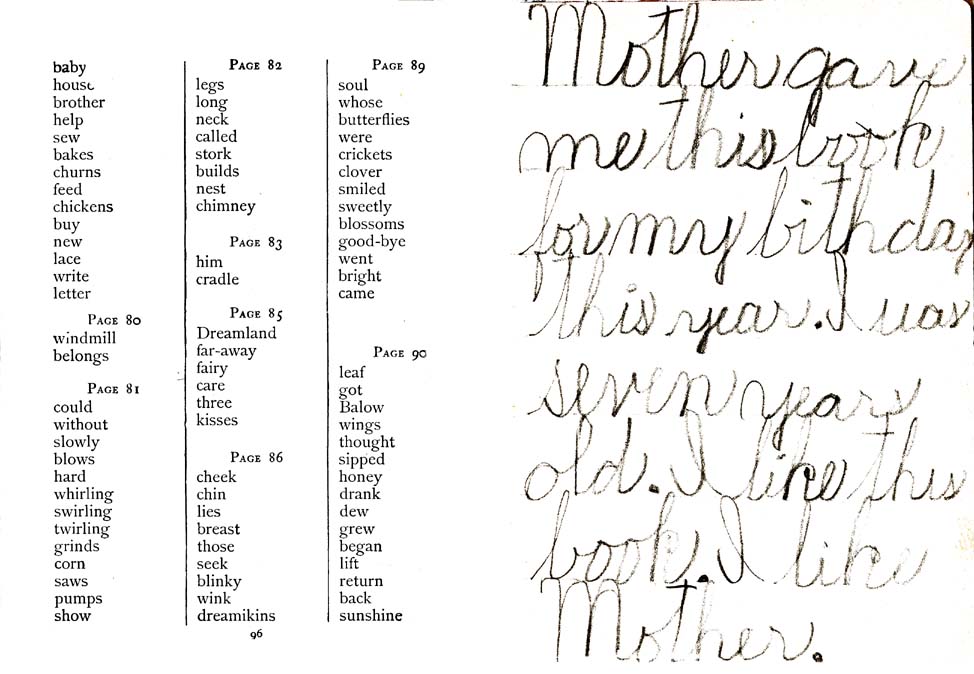 baby
house
brother
help
sew
bakes
churns
feed
chickens
buy
new
lace
write
letter
PAGE 80
windmill
belongs
PAGE 81
could
without
slowly
blows
hard
whirling
swirling
twirling
grinds
corn
saws
pumps
show
PAGE 82
legs
long
neck
called
stork
builds
nest
chimney
PAGE 83
him
cradle
PAGE 85
Dreamland
far-away
fairy
care
three
kisses
PAGE 86
cheek
chin
lies
breast
those
seek
blinky
wink
dreamikins
PAGE 89
soul
whose
butterflies
were
crickets
clover
smiled
sweetly
blossoms
good-bye
went
bright
came
PAGE 90
leaf
got
Balow
wings
thought
sipped
honey
drank
dew
grew
began
lift
return
back
sunshine
96
Mother gave
me this book
for my bithday
this year. I was
seven years
old. I like this
book. I like
Mother.